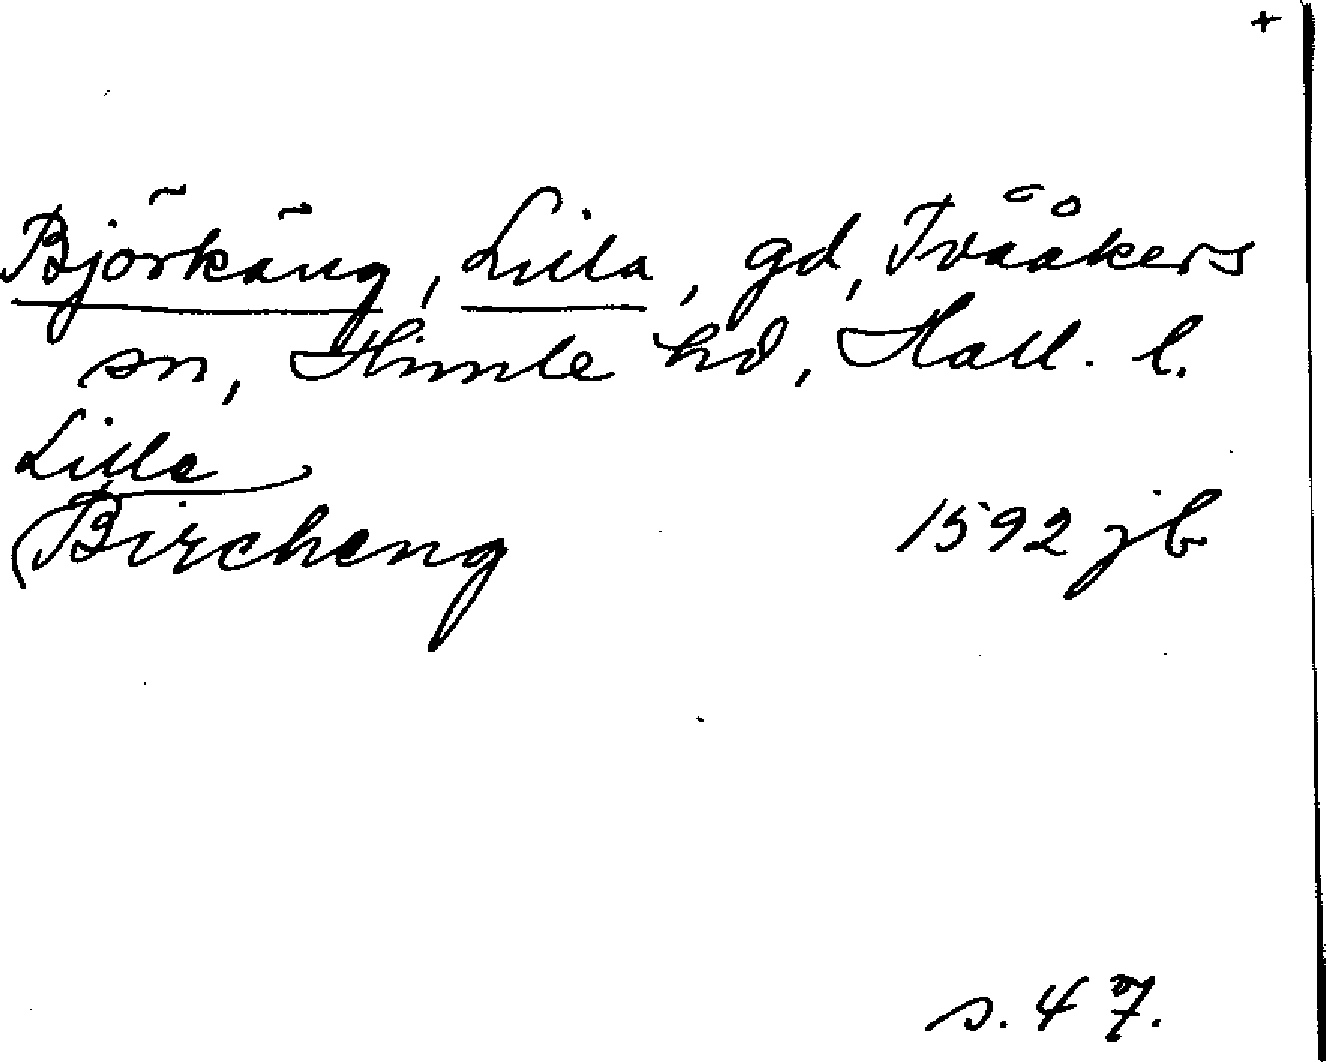 +
Björkäng, Lilla, gd, Tvååkers
sn, Himle hd, Hall. l.
Lille
Bircheng 1592 jb
s. 47.